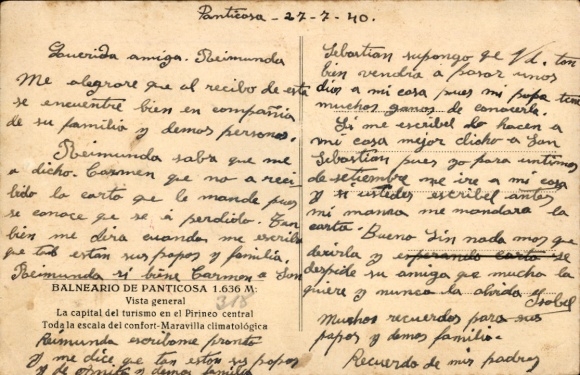 Panticosa - 27-7-40.
Querida amiga. Reimunda
Me alegrare que al recibo de esta
se encuentre bien en compañia
de su familia y demas personas.
Reimunda sabra que me
a dicho Carmen que no a reci-
bido la carta que le mande pues
se conoce que se a perdido. Tan
bien me dira cuando me escriba
que tal estan sus papas y familia.
Reimunda si biene Carmen a San
BALNEARIO DE PANTICOSA 1.636 M:
Vista general
318
La capital del turismo en el Pirineo central
Toda la escala del confort-Maravilla climatológica
Raimunda escribame pronto
y me dice que tan estan sus papas
y demas familia
Sebastian supongo qe Vd. tan
bien vendra a pasar unos
dias a mi casa pues mi papa tiene
muchas ganas de conocerla.
Si me escribel do hacen a
mi casa mejor dicho a San
Sebastian pues yo para untimos
de setiembre me ire a mi casa
y si ustedes escribel antes
mi mamá me mandara la
carta. Bueno Sin nada mas que
decirla y esperando carta se
despide su amiga que mucho la
quiere y nunca la olvida
Isabel
Muchos recuerdos para sus
papas y demas familia.
Recuerdo de mis padres